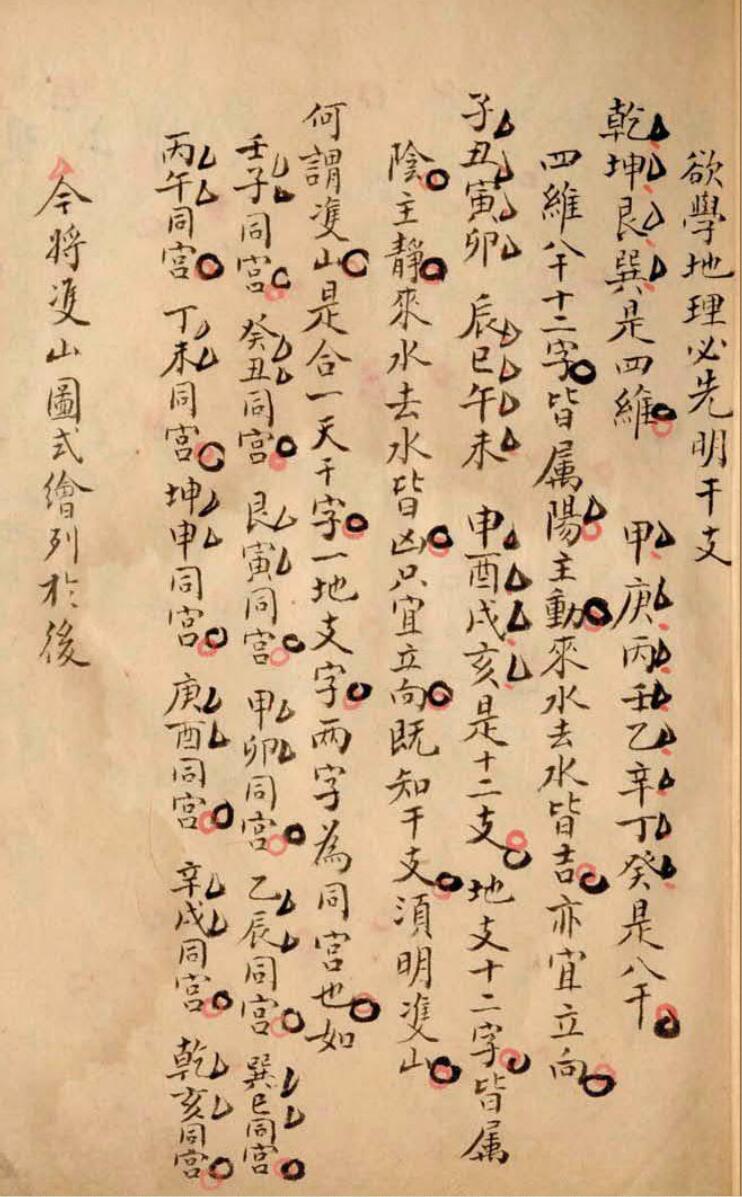 欲學地理必先明干支
乾坤艮巽是四維　甲庚丙壬乙辛丁癸是八干
四維八干十二字皆属陽主動來水去水皆吉亦宜立向
子丑寅卯　辰巳午未　申酉戌亥是十二支　地支十二字皆属
陰主靜來水去水皆凶只宜立向既知干支須明䨇山
何謂䨇山是合一天干字一地支字兩字為同宮也如
壬子同宮　癸丑同宮　艮寅同宮　甲卯同宮　乙辰同宮　巽巳同宮
丙午同宮　丁未同宮　坤申同宮　庚酉同宮　辛戌同宮　乾亥同宮
今將䨇山圖式繪列於後